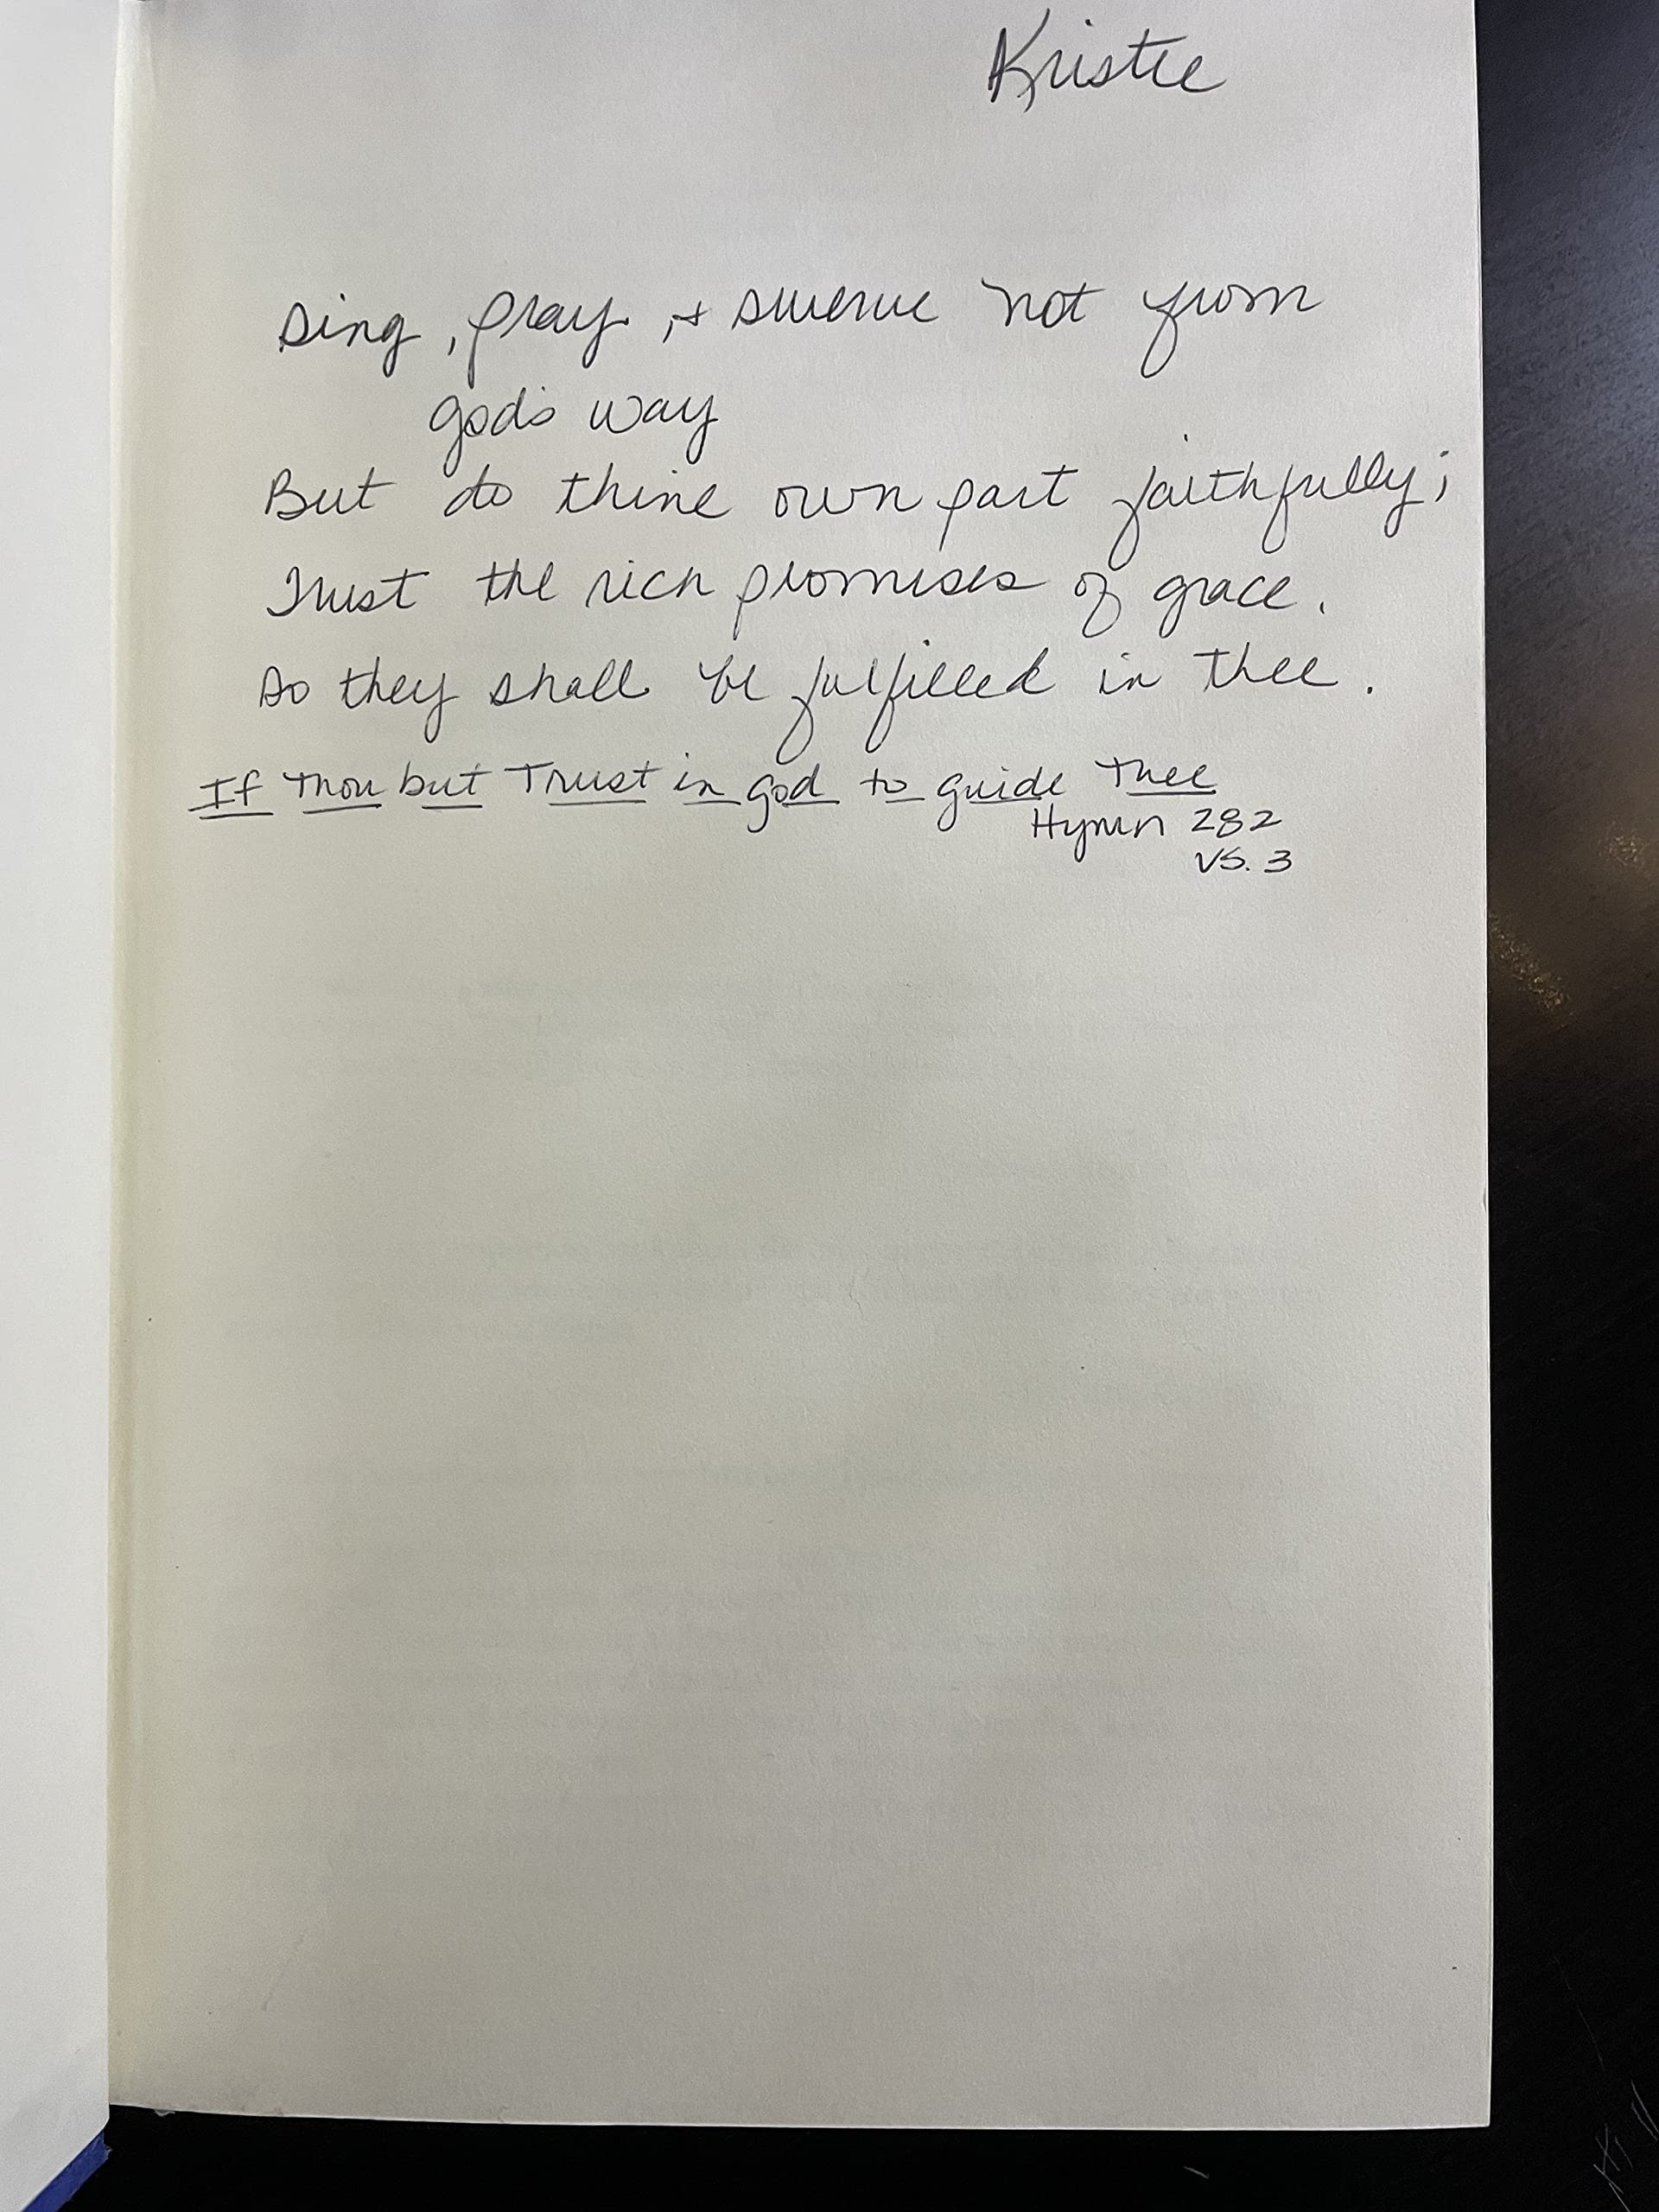 Kristee
Sing, pray, + swerve not from
God's way
But do thine own part faithfully;
Trust the rich promises of grace.
So they shall be fulfilled in thee.
If Thou but Trust in God to guide Thee
Hymn 282
VS. 3